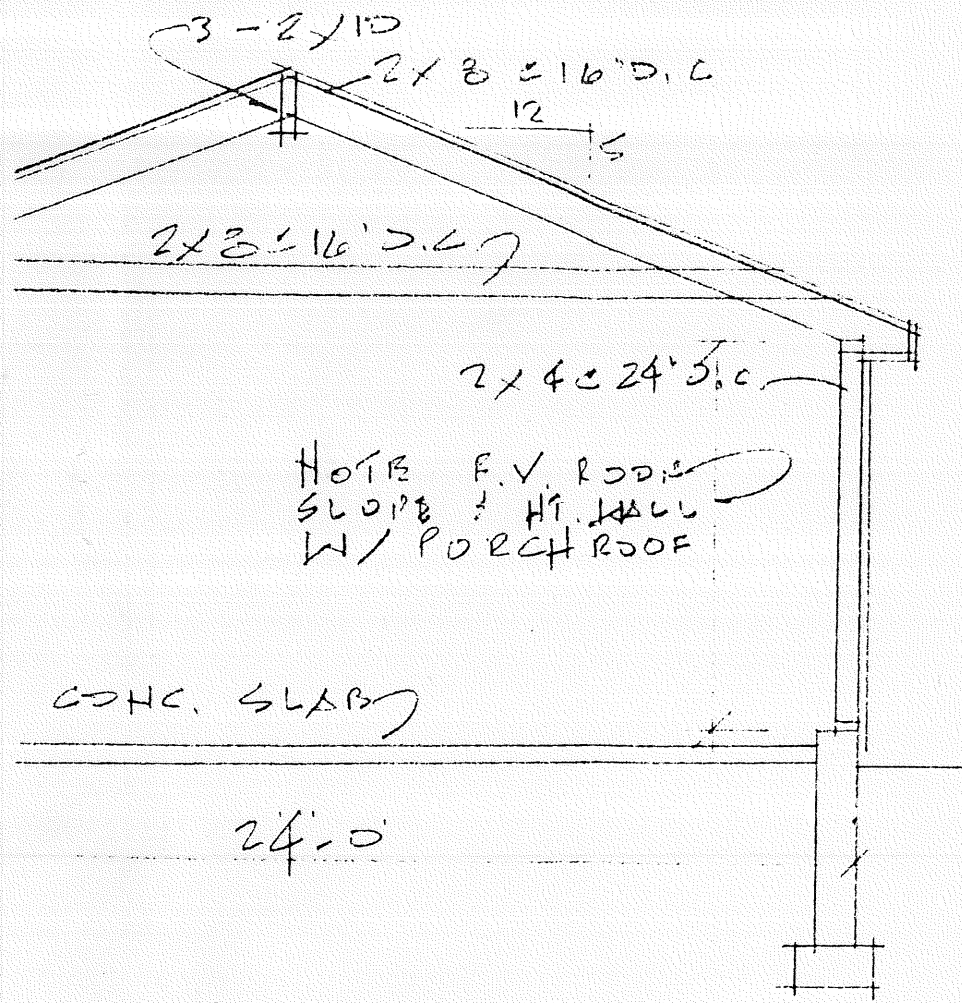 3 - 2 x 10
2 x 8 @ 16" O.C
12
5
2 x 8 @ 16" O.C.
2 x 4 @ 24" O.C.
NOTE F.V. ROOF
SLOPE & HT. WALL
W/ PORCH ROOF
CONC. SLAB
24'-0"